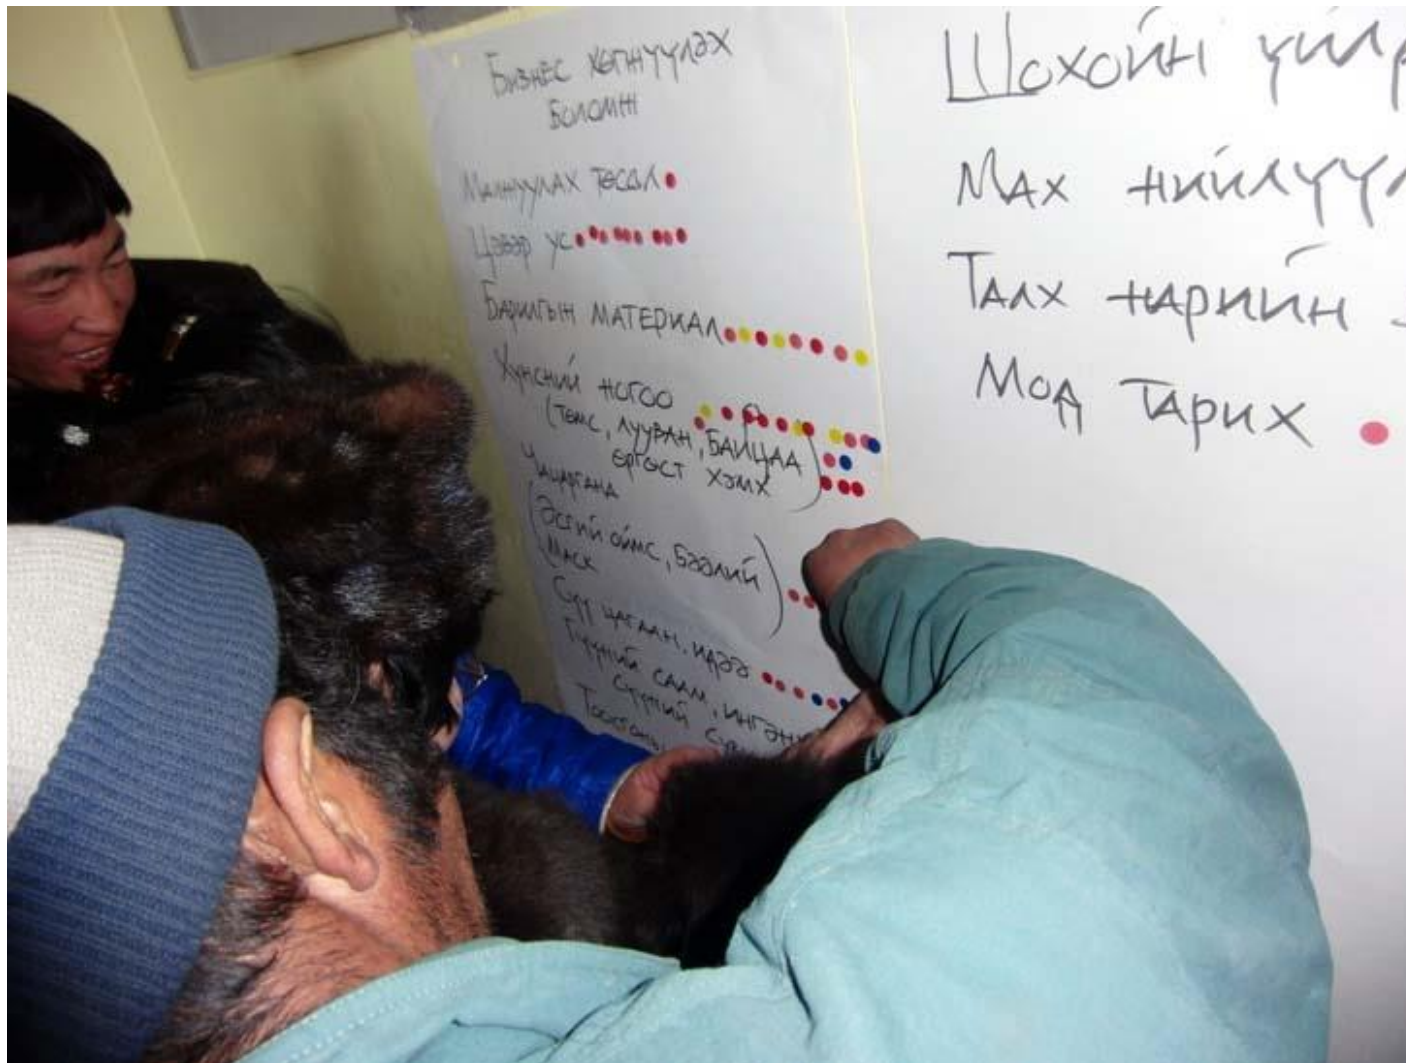 Бизнес хөгжүүлэх
боломж
Малжуулах төсөл
Цэвэр ус
Барилгын материал
Хүнсний ногоо
(төмс, лууван, байцаа
өргөст хэмх)
Чацаргана
(Эсгий оймс, бээлий)
Маск
Сүү цагаан, идээ
Гүүний саам, ингэний
сүүний
Шохойн
Мах нийлүүл
Талх нарийн
Мод тарих